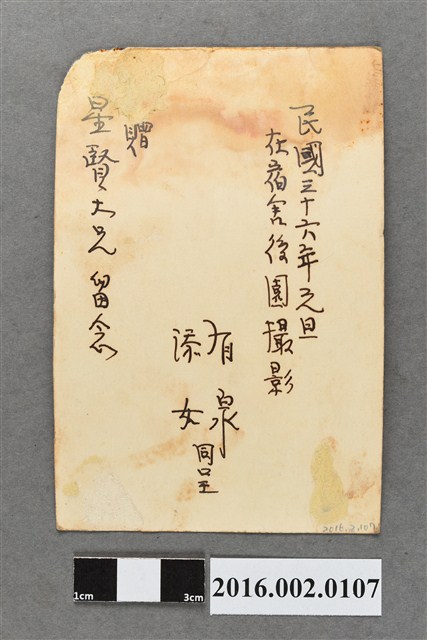 民國三十六年元旦
在宿舍後園攝影
有泉
添女
同呈
贈
星賢大兄 留念
2016.2.107
1cm
3cm
2016.002.0107